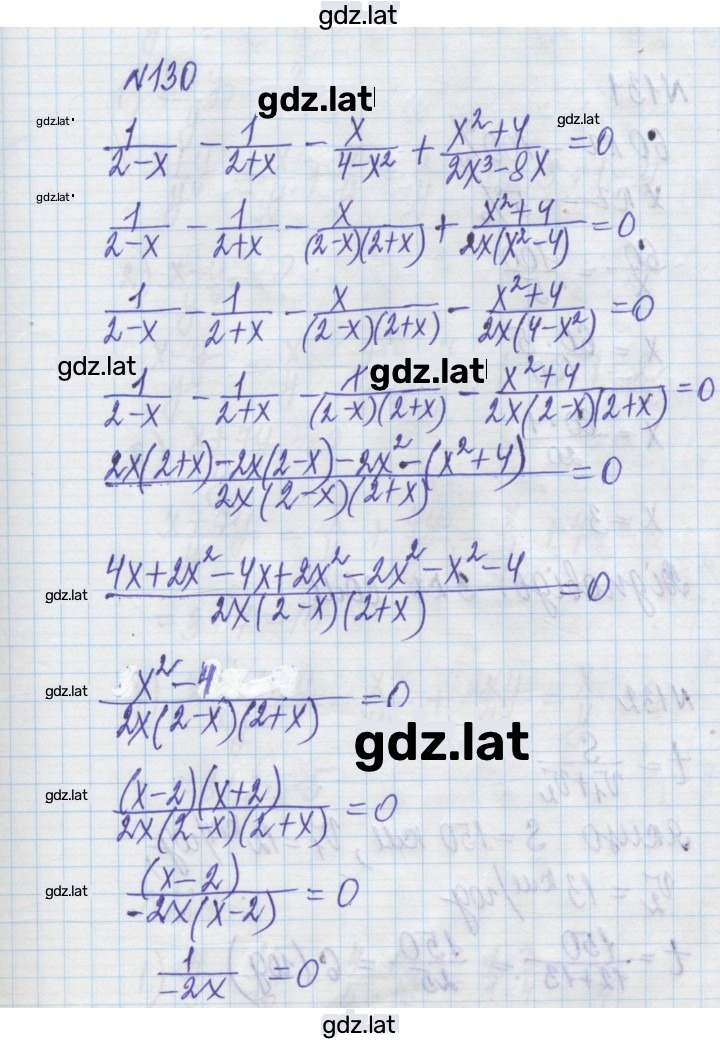 gdz.lat
№130
gdz.lat
gdz.lat 1/(2-x) - 1/(2+x) - x/(4-x²) + (x²+4)/(2x³-8x) = 0 gdz.lat
gdz.lat 1/(2-x) - 1/(2+x) - x/((2-x)(2+x)) + (x²+4)/(2x(x²-4)) = 0
1/(2-x) - 1/(2+x) - x/((2-x)(2+x)) - (x²+4)/(2x(4-x²)) = 0
gdz.lat gdz.lat
1/(2-x) - 1/(2+x) - x/((2-x)(2+x)) - (x²+4)/(2x(2-x)(2+x)) = 0
(2x(2+x)-2x(2-x)-2x²-(x²+4))/(2x(2-x)(2+x)) = 0
gdz.lat (4x+2x²-4x+2x²-2x²-x²-4)/(2x(2-x)(2+x)) = 0
gdz.lat (x²-4)/(2x(2-x)(2+x)) = 0
gdz.lat
gdz.lat ((x-2)(x+2))/(2x(2-x)(2+x)) = 0
gdz.lat (x-2)/(-2x(x-2)) = 0
1/(-2x) = 0
gdz.lat